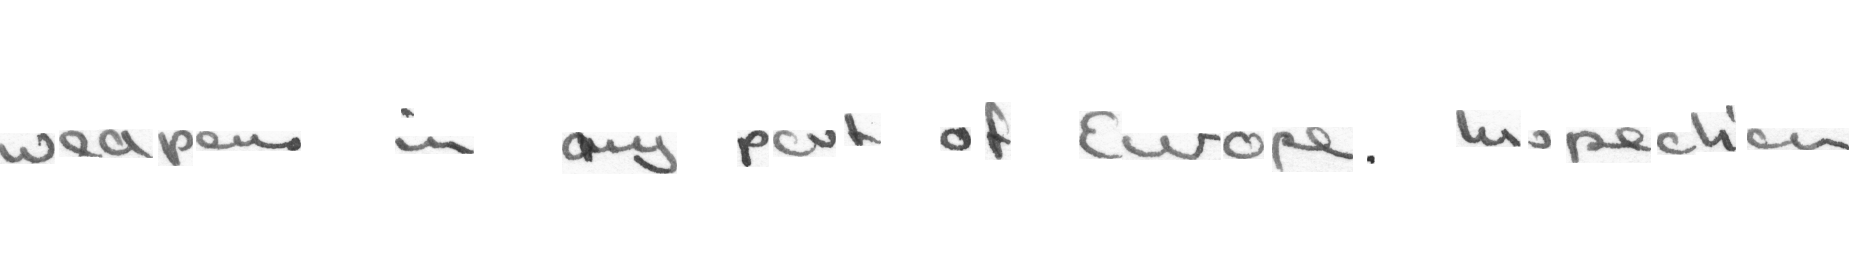 weapons in any part of Europe. Inspection